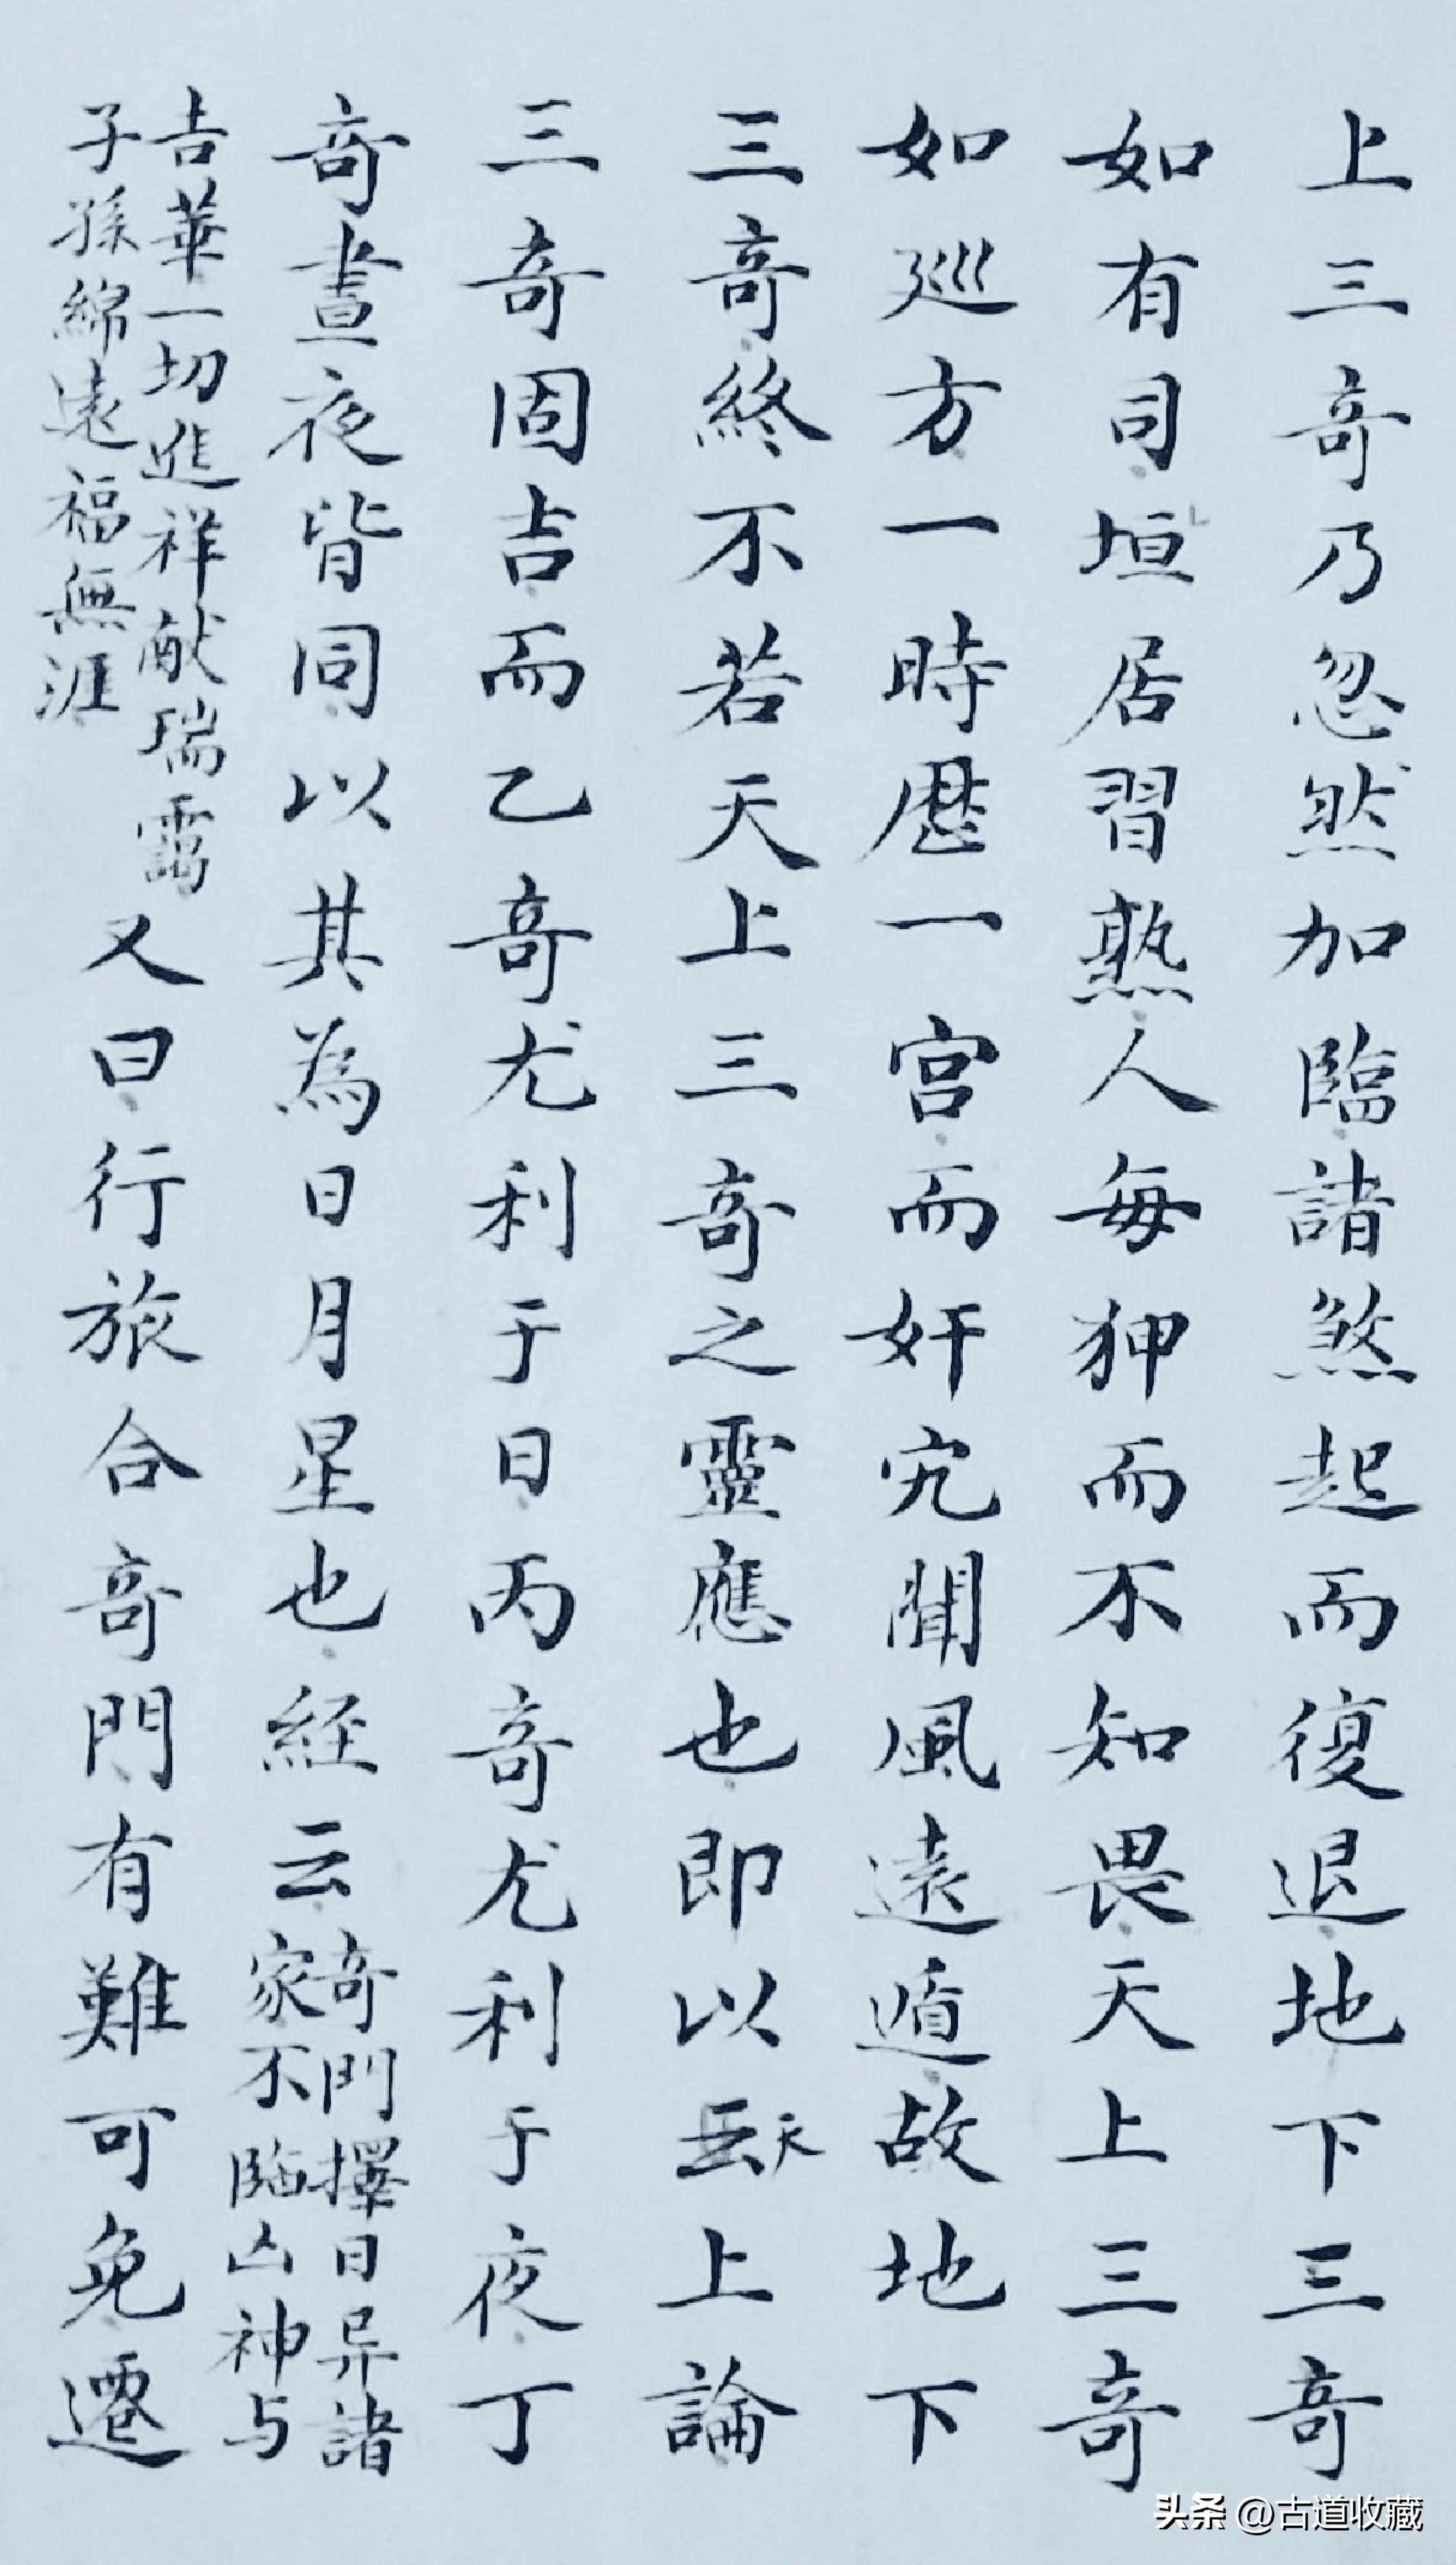 上三奇乃忽然加臨諸煞起而復退地下三奇
如有司垣居習熟人每狎而不知畏天上三奇
如巡方一時歷一宮而奸宄聞風遠遁故地下
三奇終不若天上三奇之靈應也即以天上論
三奇固吉而乙奇尤利于日丙奇尤利于夜丁
奇晝夜皆同以其為日月星也経云
奇門擇日异諸
家不臨凶神与
吉華一切進祥献瑞靄
子孫綿遠福無涯
又曰行旅合奇門有難可免遷
头条 @古道收藏